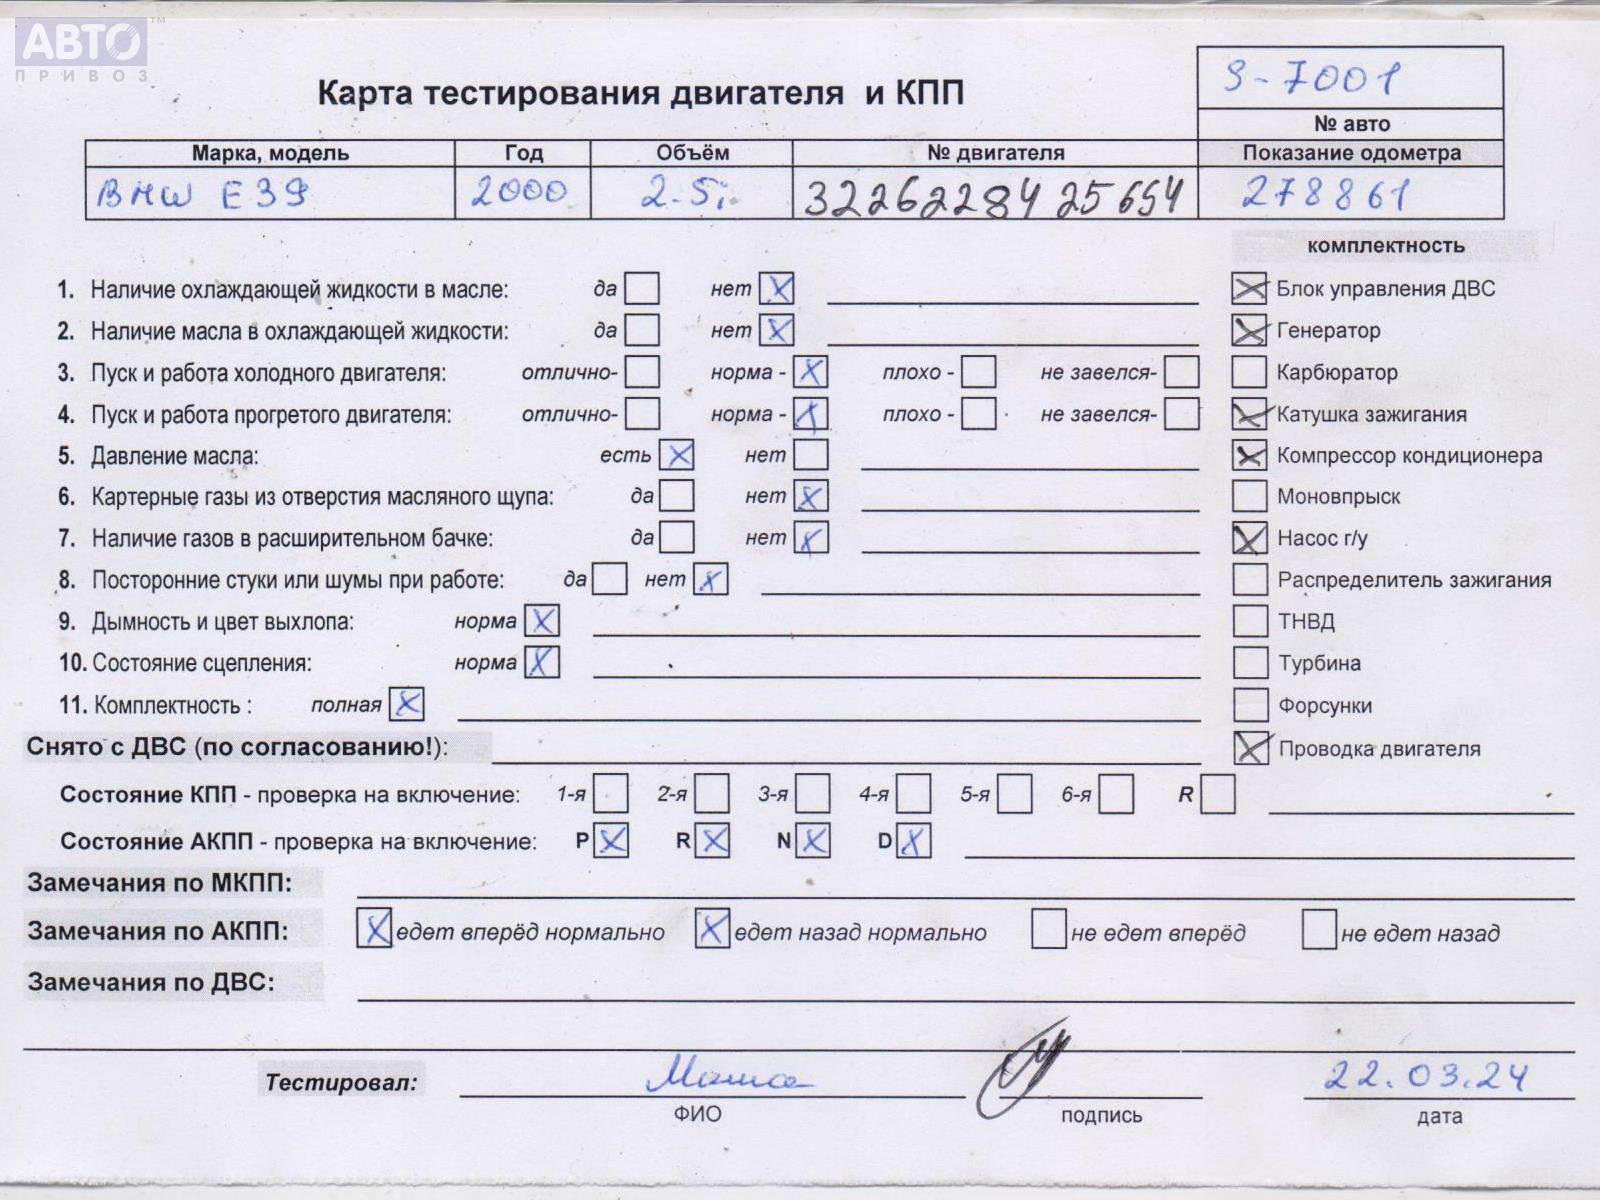 АВТО™
ПРИВОЗ
Карта тестирования двигателя и КПП
S-7001
№ авто
Марка, модель Год Объём № двигателя Показание одометра
BMW E39 2000 2.5i 32262284 25654 278861
комплектность
1. Наличие охлаждающей жидкости в масле: да нет X X Блок управления ДВС
2. Наличие масла в охлаждающей жидкости: да нет X X Генератор
3. Пуск и работа холодного двигателя: отлично- норма - X плохо - не завелся- Карбюратор
4. Пуск и работа прогретого двигателя: отлично- норма - X плохо - не завелся- X Катушка зажигания
5. Давление масла: есть X нет X Компрессор кондиционера
6. Картерные газы из отверстия масляного щупа: да нет X Моновпрыск
7. Наличие газов в расширительном бачке: да нет X X Насос г/у
8. Посторонние стуки или шумы при работе: да нет X Распределитель зажигания
9. Дымность и цвет выхлопа: норма X ТНВД
10. Состояние сцепления: норма X Турбина
11. Комплектность : полная X Форсунки
Снято с ДВС (по согласованию!): X Проводка двигателя
Состояние КПП - проверка на включение: 1-я 2-я 3-я 4-я 5-я 6-я R
Состояние АКПП - проверка на включение: P X R X N X D X
Замечания по МКПП:
Замечания по АКПП: X едет вперёд нормально X едет назад нормально не едет вперёд не едет назад
Замечания по ДВС:
Тестировал: 22.03.24
ФИО подпись дата